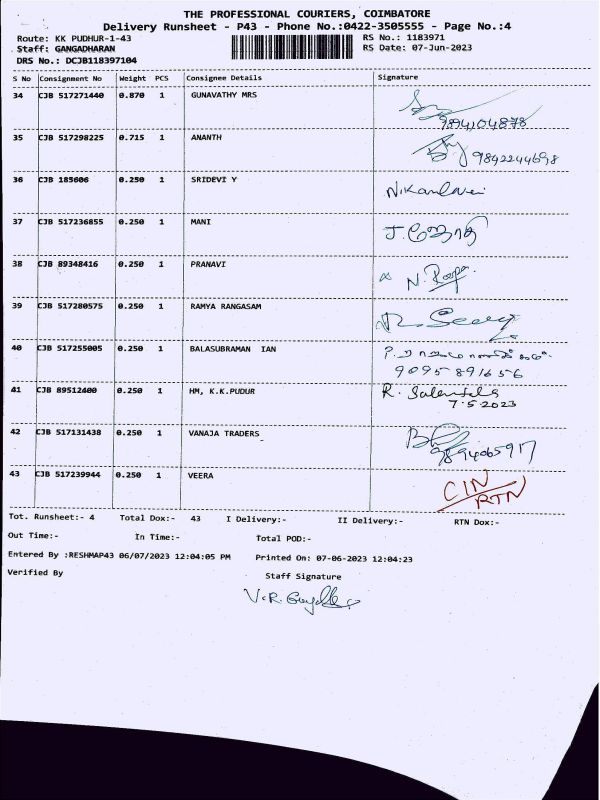 THE PROFESSIONAL COURIERS, COIMBATORE
Delivery Runsheet - P43 - Phone No.:0422-3505555 - Page No.:4
Route: KK PUDHUR-1-43 RS No.: 1183971
Staff: GANGADHARAN RS Date: 07-Jun-2023
DRS No.: DCJB118397104
S No Consignment No Weight PCS Consignee Details Signature
34 CJB 517271440 0.870 1 GUNAVATHY MRS
9894104878
35 CJB 517298225 0.715 1 ANANTH
9842244698
36 CJB 185606 0.250 1 SRIDEVI Y
37 CJB 517236855 0.250 1 MANI J.
38 CJB 89348416 0.250 1 PRANAVI N.
39 CJB 517280575 0.250 1 RAMYA RANGASAM
40 CJB 517255005 0.250 1 BALASUBRAMAN IAN
9095891656
41 CJB 89512400 0.250 1 HM, K.K.PUDUR R.
7.5.2023
42 CJB 517131438 0.250 1 VANAJA TRADERS
9894065917
43 CJB 517239944 0.250 1 VEERA CIN
RTN
Tot. Runsheet:- 4 Total Dox:- 43 I Delivery:- II Delivery:- RTN Dox:-
Out Time:- In Time:- Total POD:-
Entered By :RESHMAP43 06/07/2023 12:04:05 PM Printed On: 07-06-2023 12:04:23
Verified By Staff Signature
V.R.